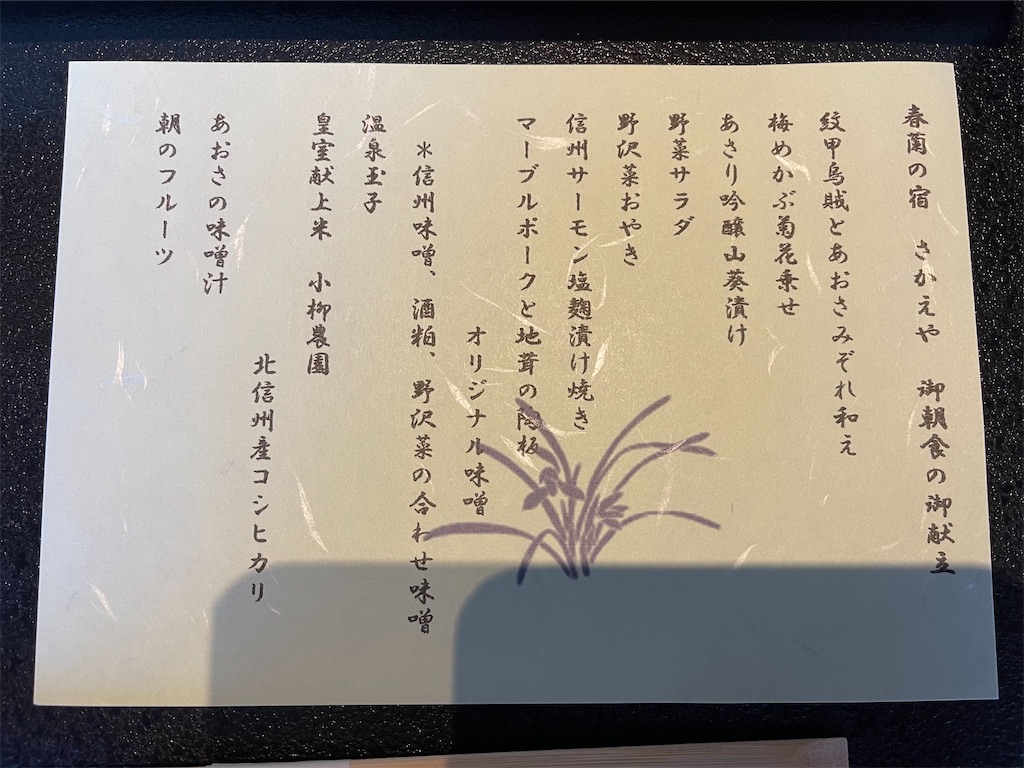 春蘭の宿　さかえや　御朝食の御献立
紋甲烏賊とあおさみぞれ和え
梅めかぶ菊花乗せ
あさり吟醸山葵漬け
野菜サラダ
野沢菜おやき
信州サーモン塩麹漬け焼き
マーブルポークと地茸の陶板
オリジナル味噌
＊信州味噌、酒粕、野沢菜の合わせ味噌
温泉玉子
皇室献上米　小柳農園
北信州産コシヒカリ
あおさの味噌汁
朝のフルーツ